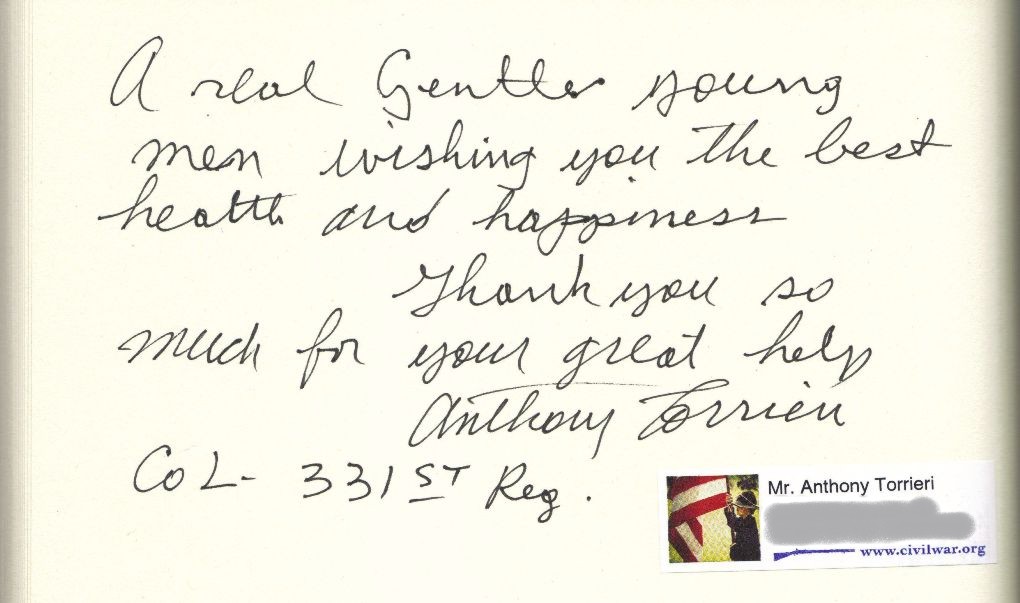 A real Gentler young
men wishing you the best
health and happiness
Thank you so
much for your great help
Anthony Torrieri
Co L- 331ST Reg.
Mr. Anthony Torrieri
www.civilwar.org